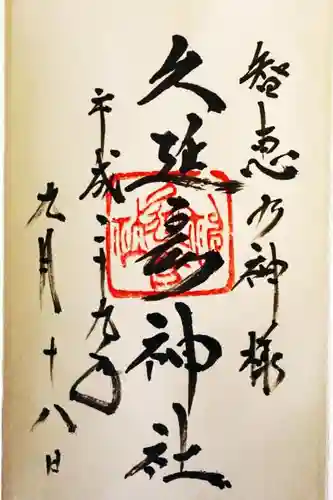 智恵の神様
久延彦神社
平成二十九年
九月十八日